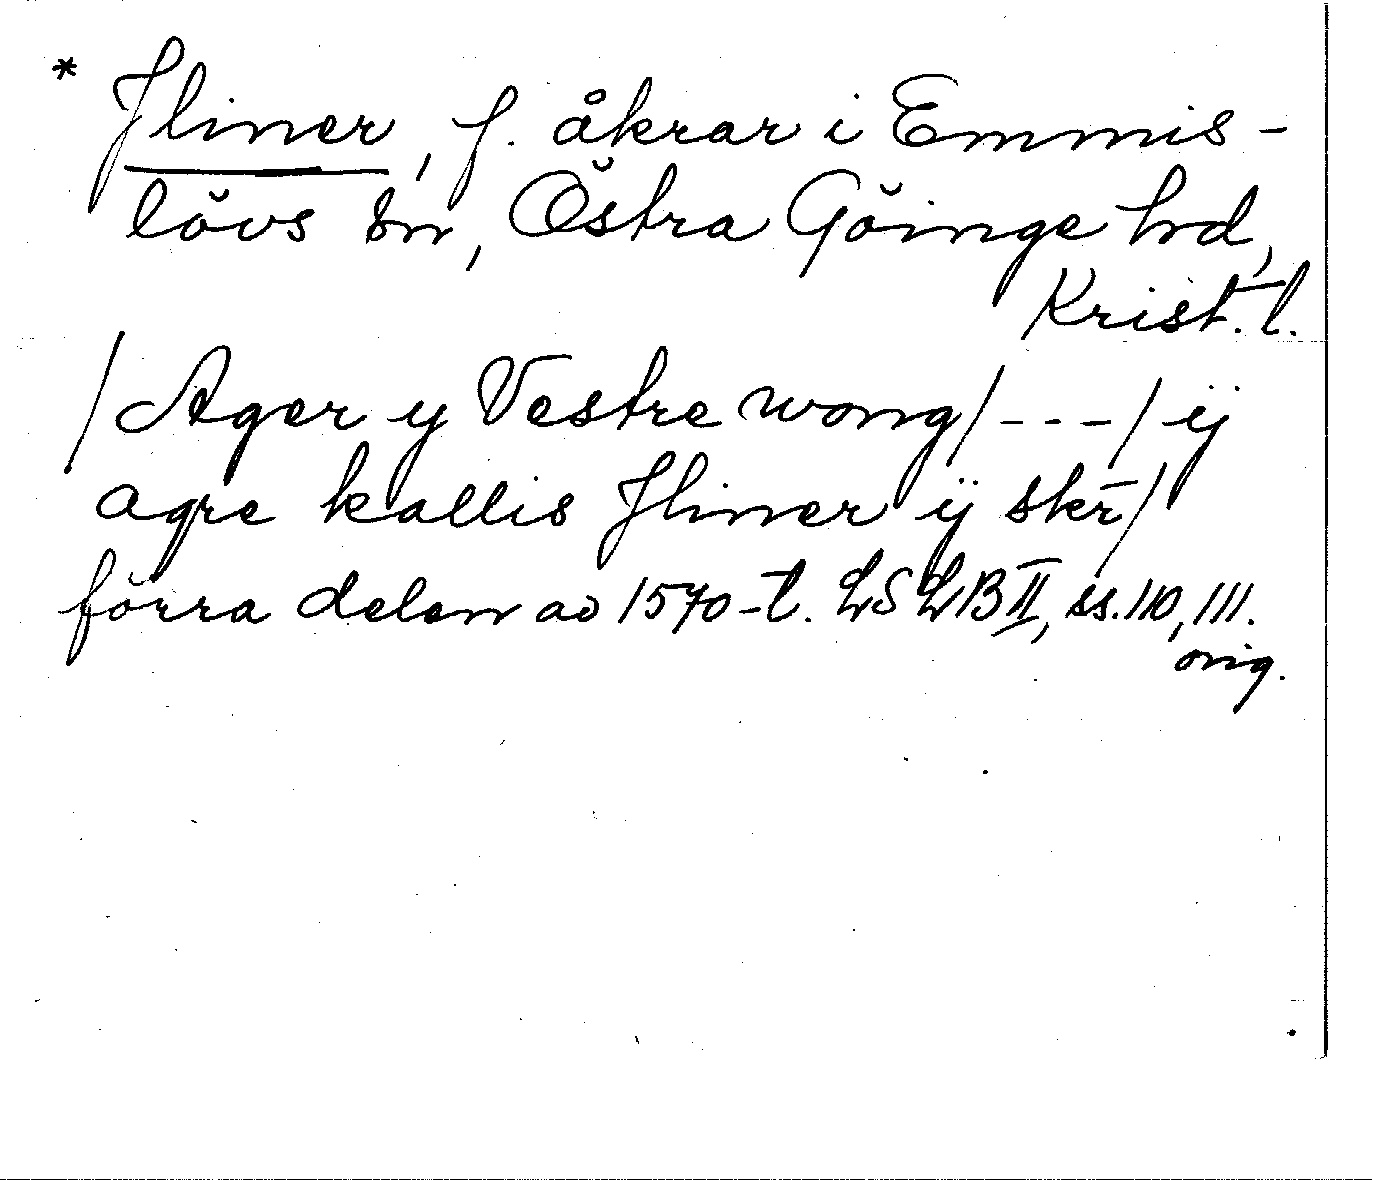 * Jliner, f. åkrar i Emmis-
lövs sn, Östra Göinge hd,
Krist. l.
/Ager y Vestre wong/---/ ij
agre kallis Jliner ÿ skr/
förra delen av 1570-t. LSLB II, ss. 110, 111.
orig.